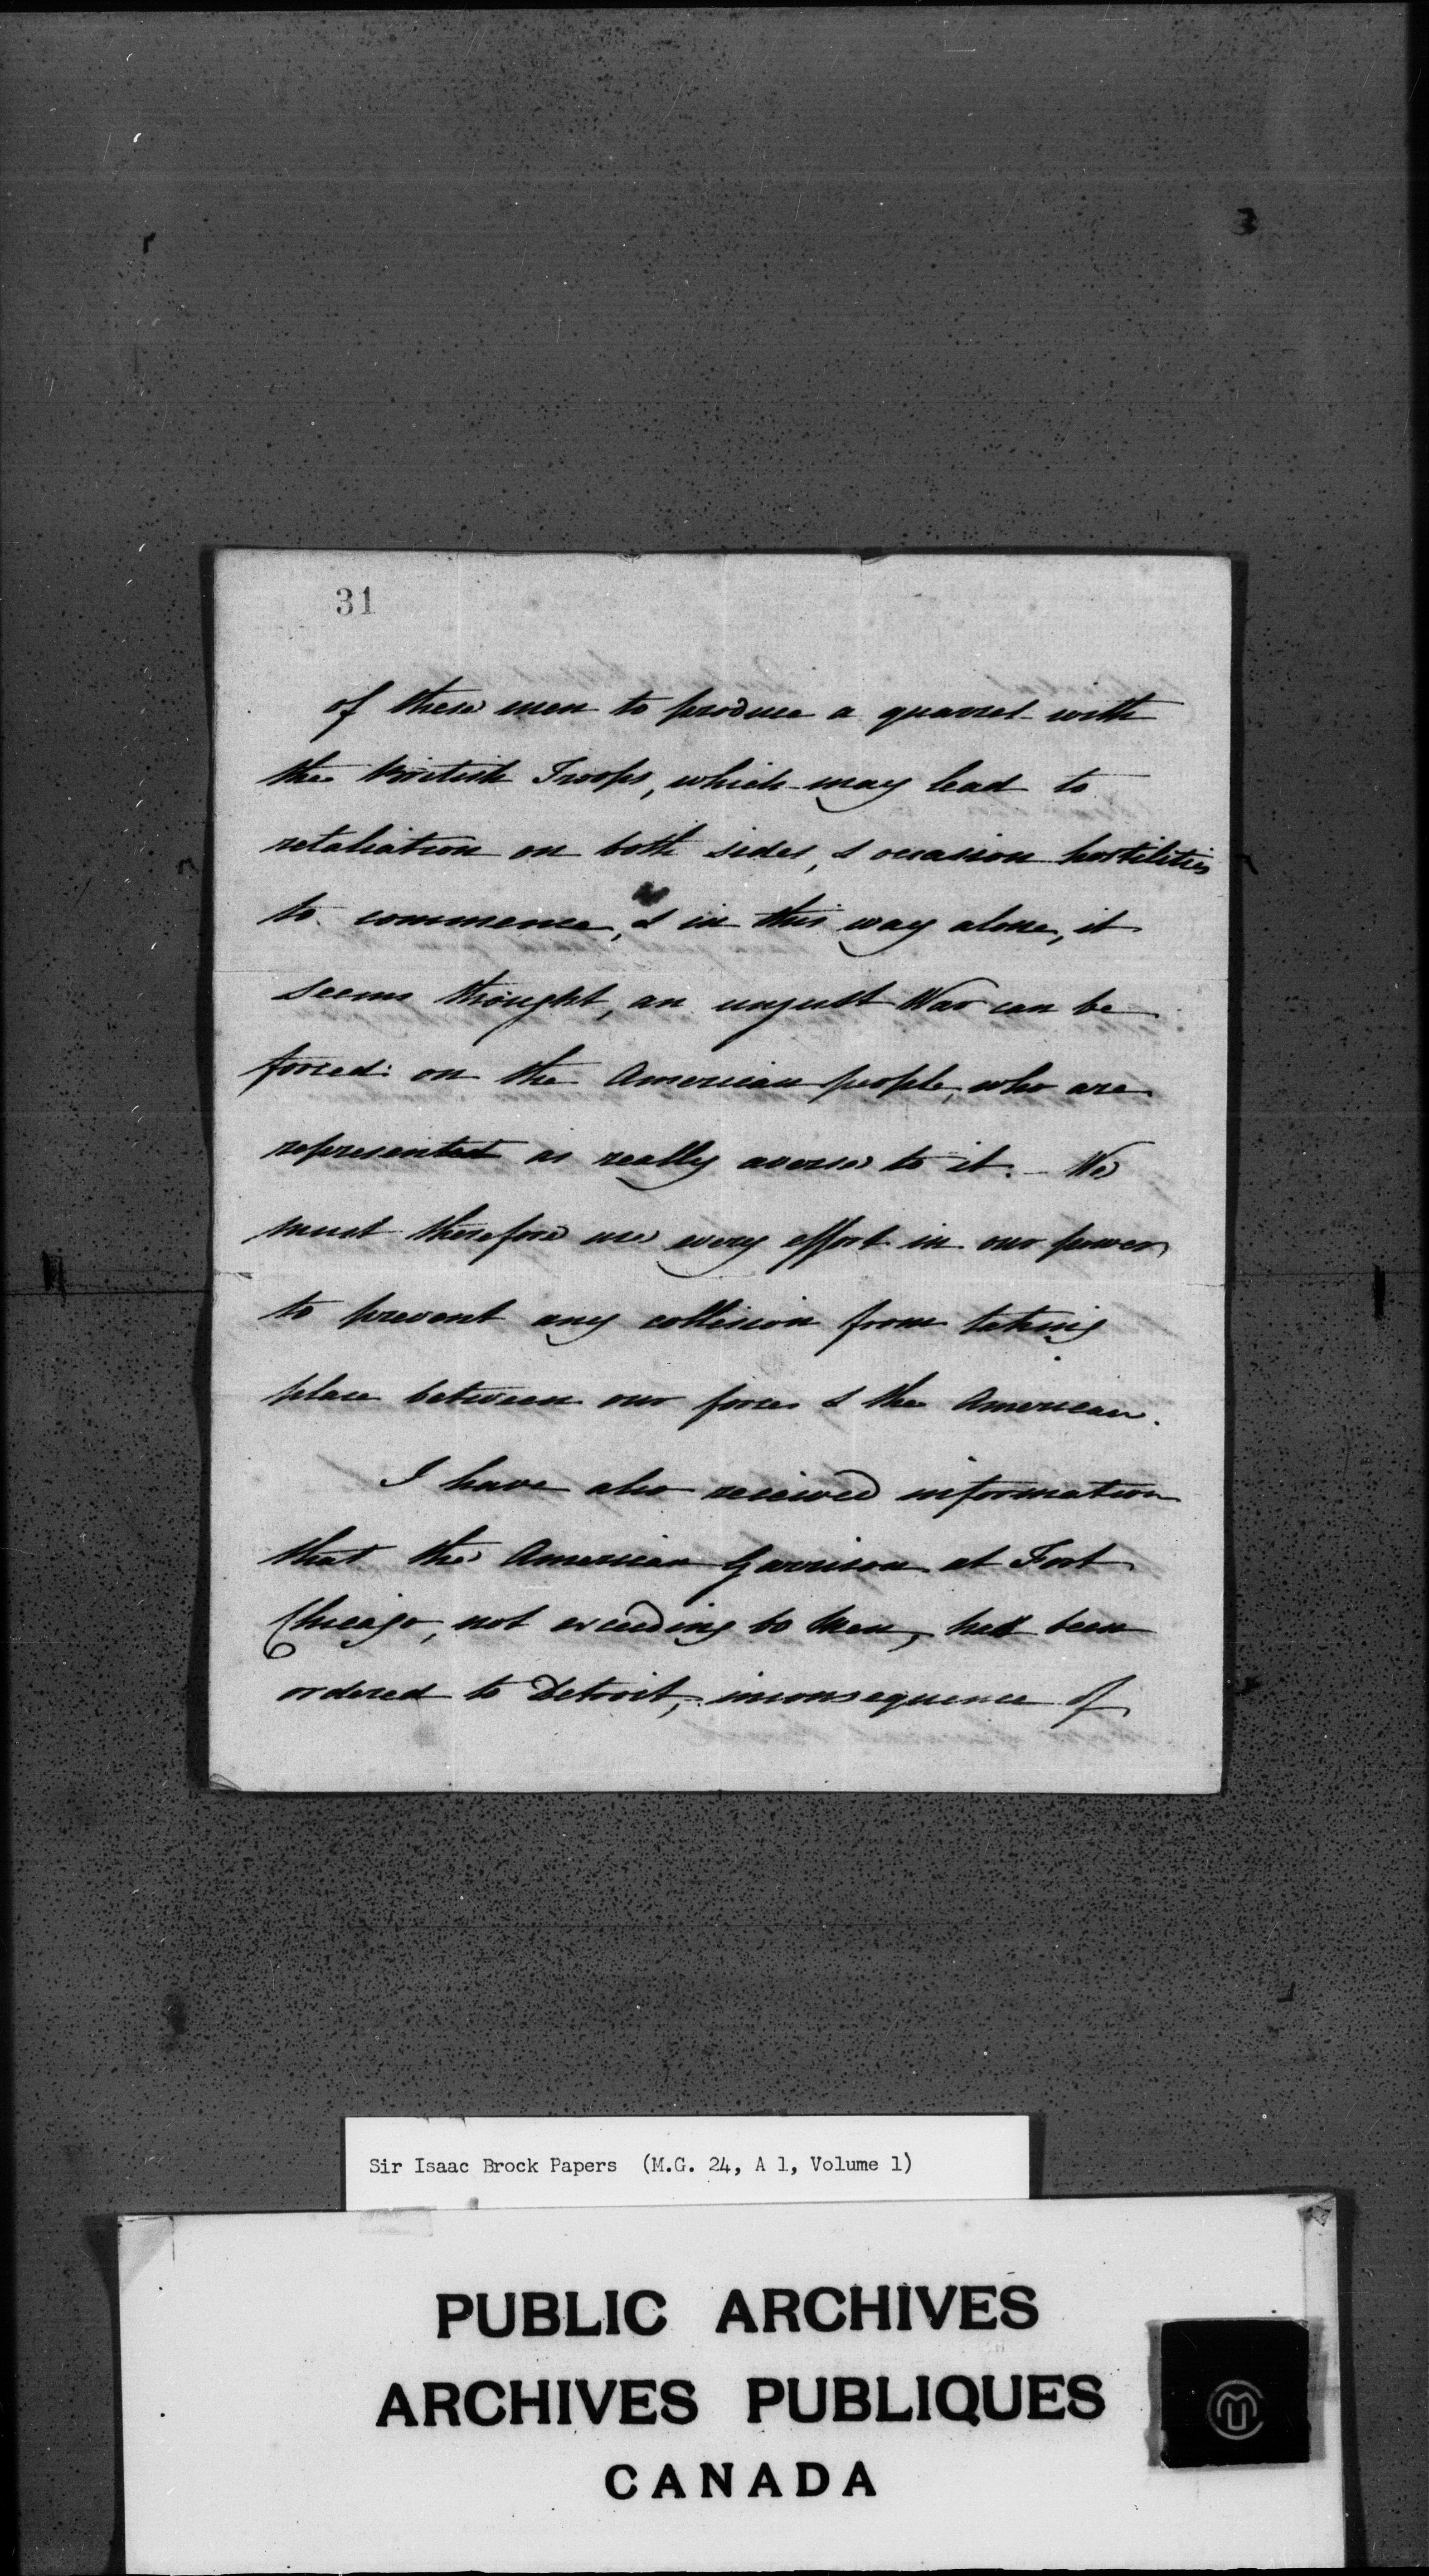 31
of these men to produce a quarrel with
the British Troops, which may lead to
retaliation on both sides, & occasion hostilities
to commence, & in this way alone, it
seems thought, an unjust War can be
forced on the American people, who are
represented as really averse to it. – We
must therefore use every effort in our power
to prevent any collision from taking
place between our forces & the American.
I have also received information
that the American Garrison at Fort
Chicago, not exceeding 60 Men, had been
ordered to Detroit, in consequence of
Sir Isaac Brock Papers (M.G. 24, A 1, Volume 1)
PUBLIC ARCHIVES
ARCHIVES PUBLIQUES
CANADA